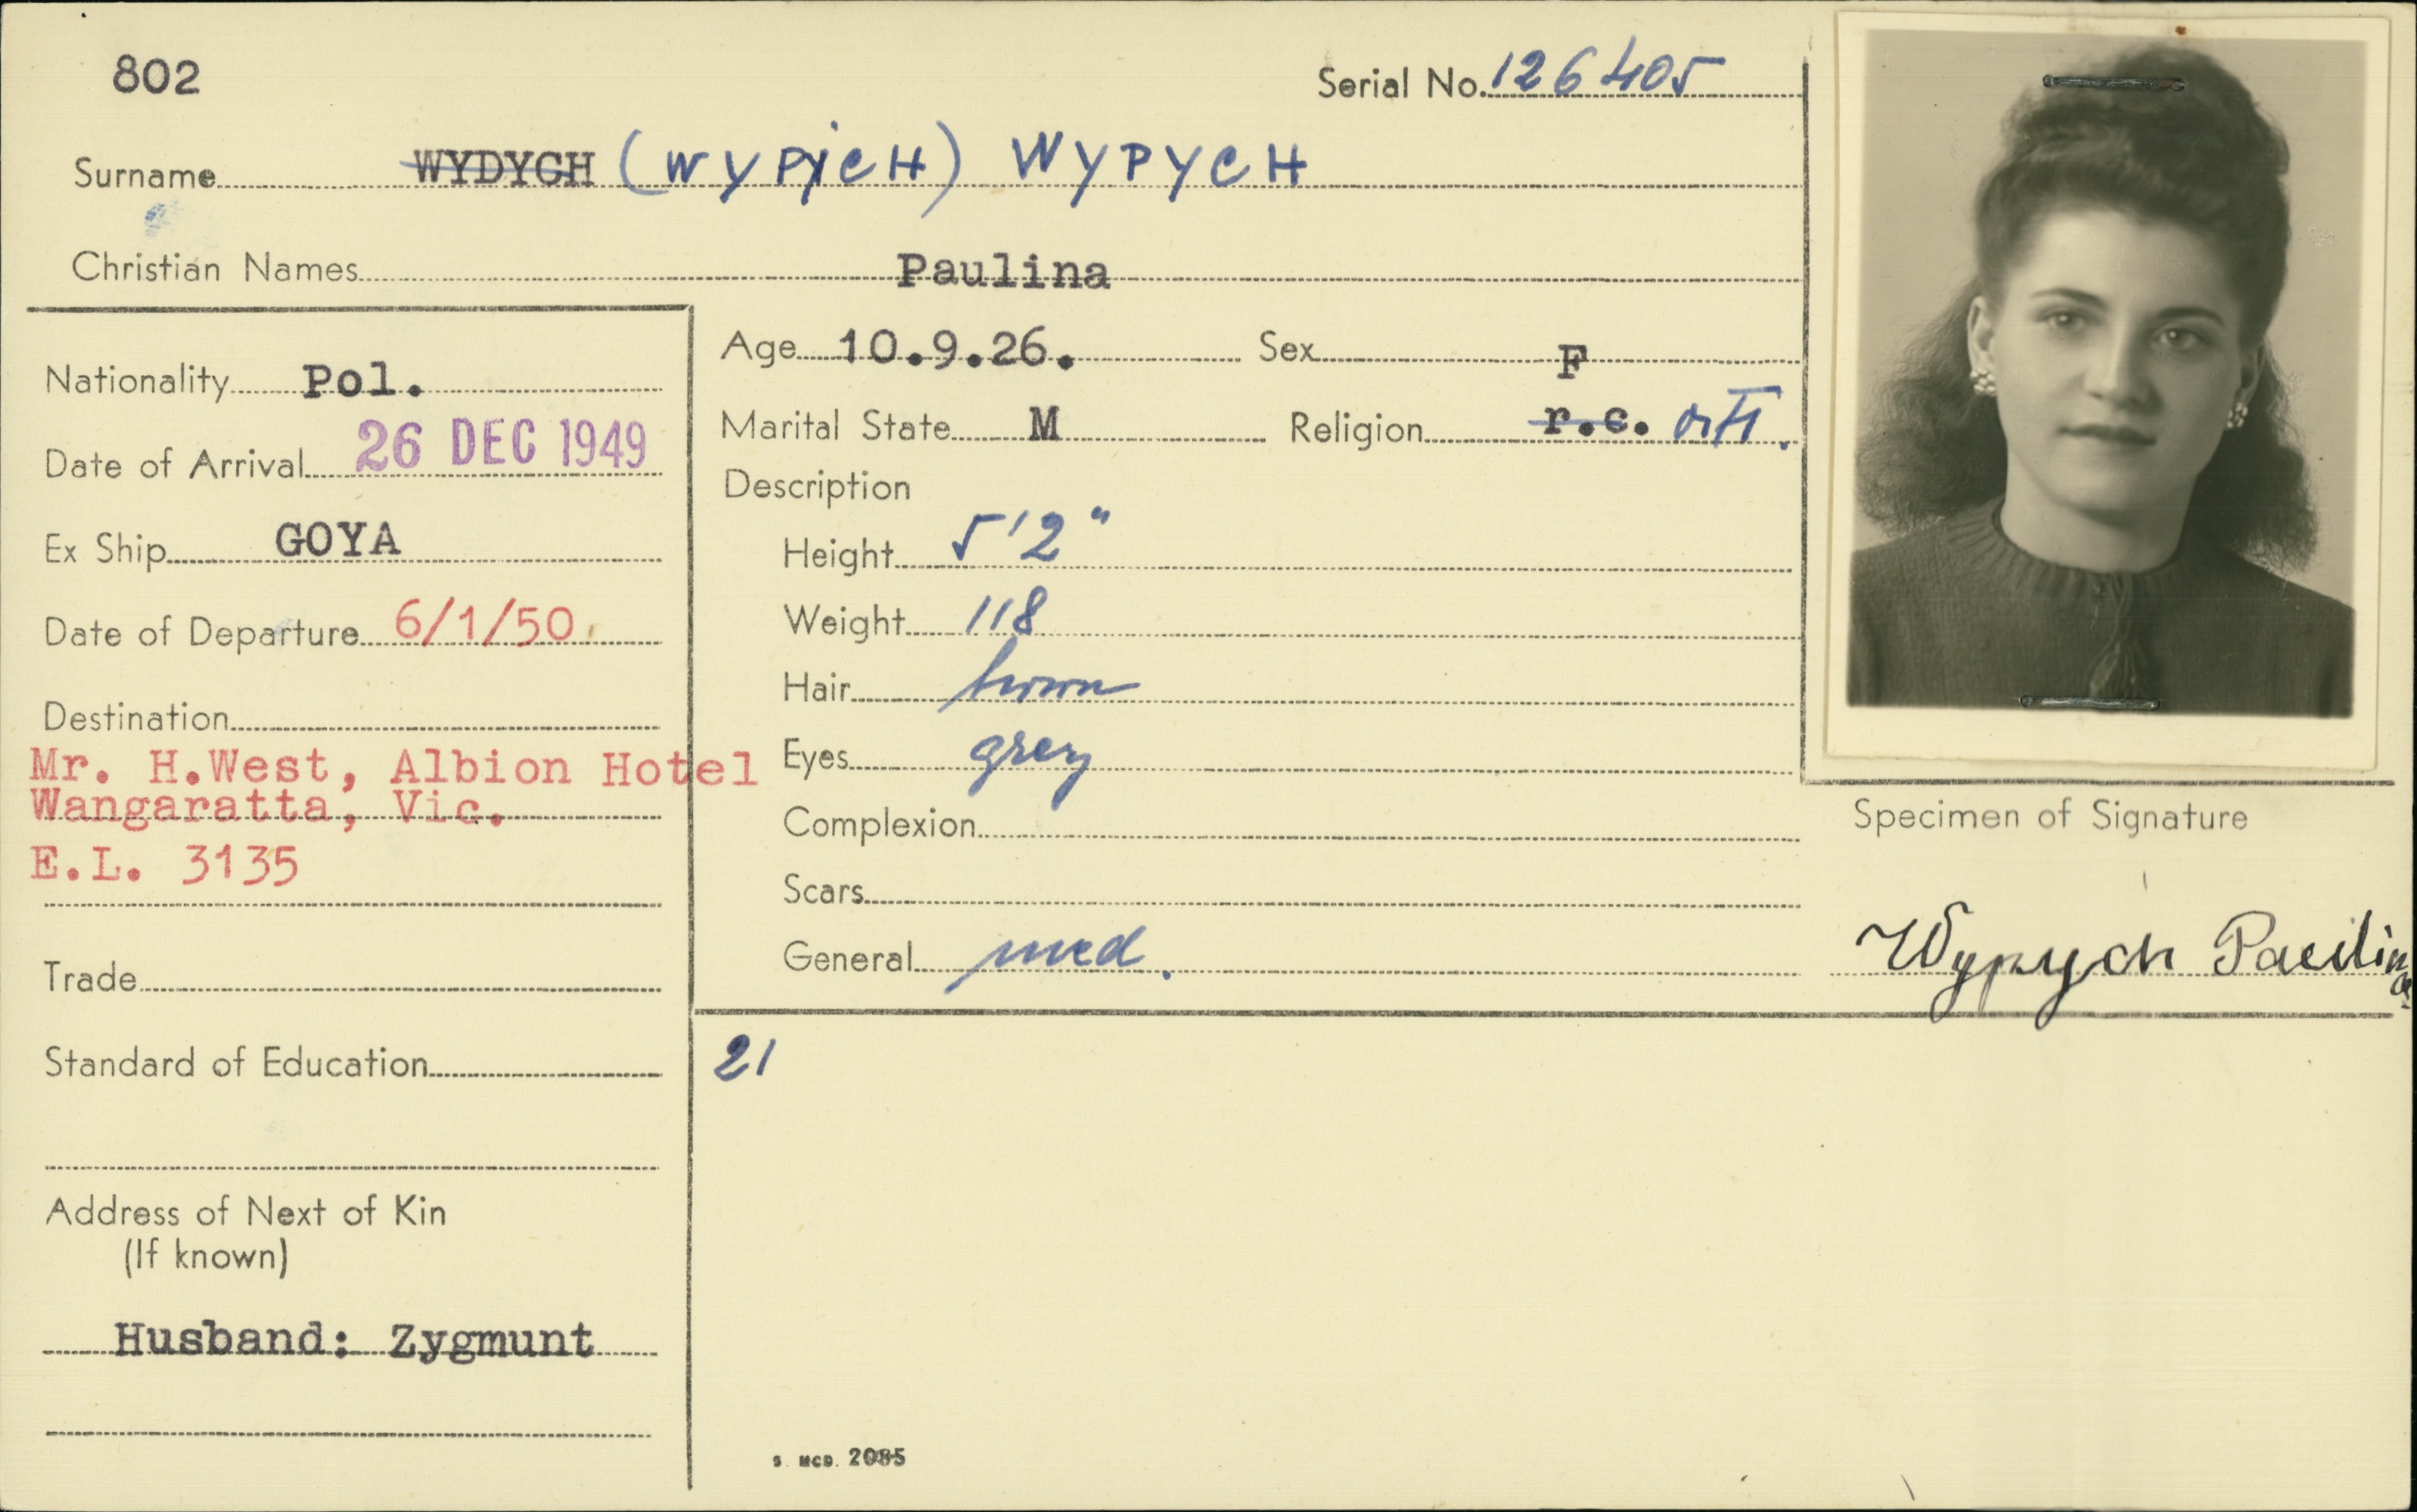 802
Serial No. 126405
Surname WYDYCH (WYPYCH) WYPYCH
Christian Names Paulina
Nationality Pol.
Date of Arrival 26 DEC 1949
Ex Ship GOYA
Date of Departure 6/1/50
Destination
Mr. H.West, Albion Hotel
Wangaratta, Vic.
E.L. 3135
Trade
Standard of Education
Address of Next of Kin
(If known)
Husband: Zygmunt
Age 10.9.26. Sex F
Marital State M Religion r.c. orth.
Description
Height 5'2"
Weight 118
Hair brown
Eyes grey
Complexion
Scars
General med.
21
S. MCD. 2085
Specimen of Signature
Wypych Paulina